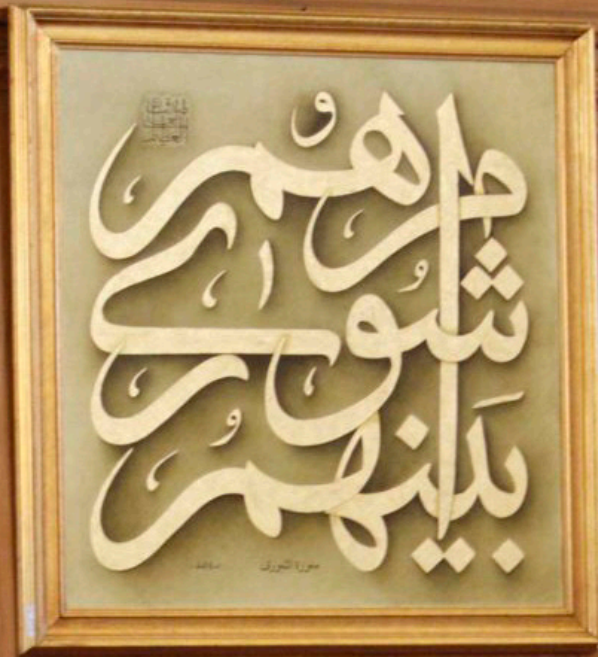 وأمرهم
شورى
بينهم
سورة الشورى